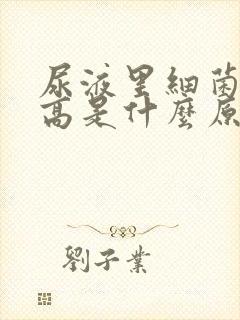 尿液里細菌
高是什麼原
劉子業